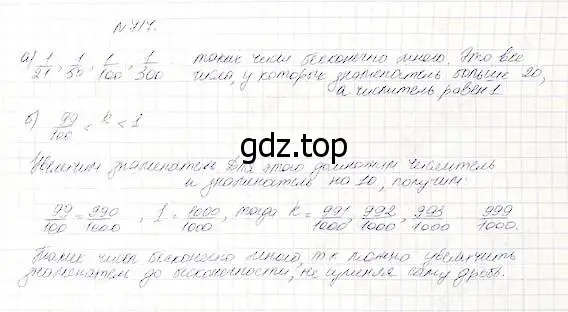 № 717.
а) 1/21, 1/50, 1/100, 1/300. таких чисел бесконечно много. Это все
числа, у которых знаменатель больше 20,
а числитель равен 1
б) 99/100 < k < 1
Увеличим знаменатель. Для этого домножим числитель
и знаменатель на 10, получим:
99/100 = 990/1000, 1 = 1000/1000, тогда k = 991/1000, 992/1000, 993/1000 ... 999/1000.
Таких чисел бесконечно много, т.к можно увеличить
знаменатель до бесконечности, не изменяя саму дробь.
gdz.top